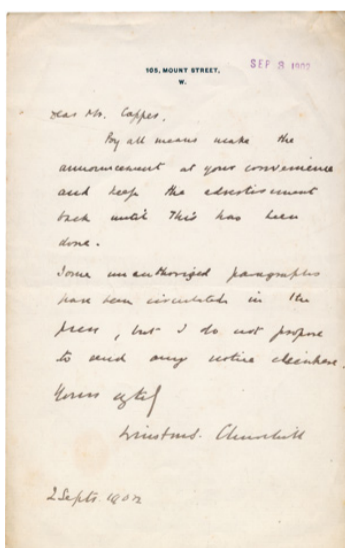 105, MOUNT STREET,
W.
SEP 3 1902
Dear Mr. Cappes,
By all means make the
announcement at your convenience
and keep the advertisement
back until this has been
done.
Some unauthorized paragraphs
have been circulated in the
press, but I do not propose
to send any notice elsewhere.
Yours
Winston S. Churchill
2 Septr. 1902